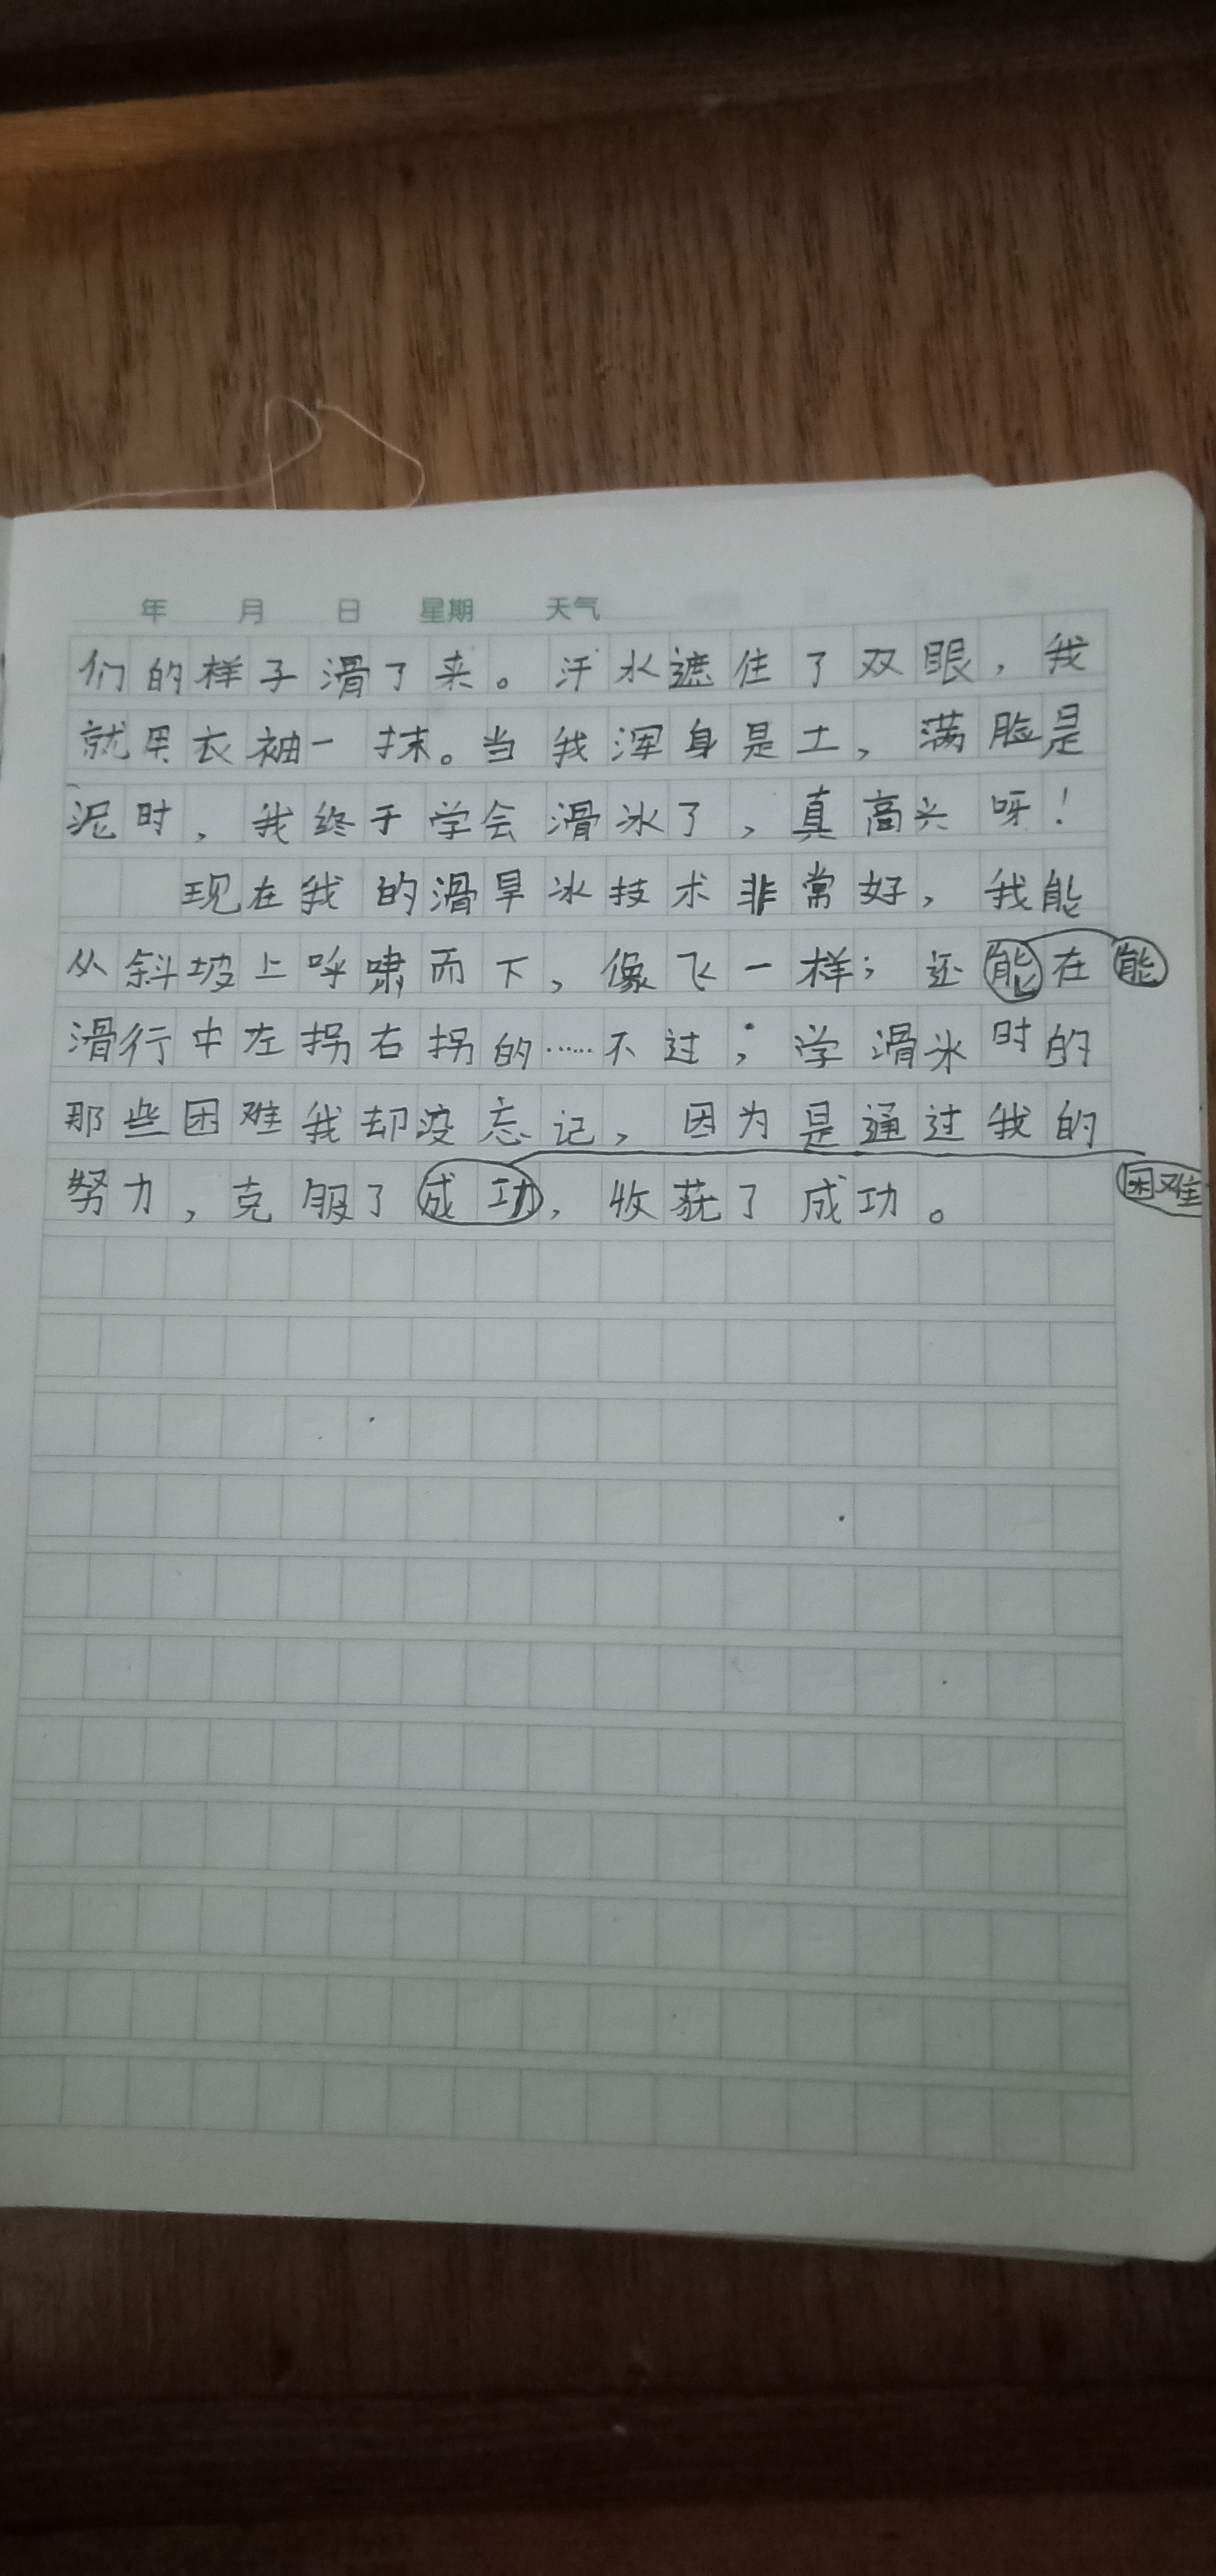 年 月 日 星期 天气
们的样子滑了来。汗水遮住了双眼，我
就用衣袖一抹。当我浑身是土，满脸是
泥时，我终于学会滑冰了，真高兴呀！
现在我的滑旱冰技术非常好，我能
从斜坡上呼啸而下，像飞一样；还能在 能
滑行中左拐右拐的……不过；学滑冰时的
那些困难我却没忘记，因为是通过我的
努力，克服了成功，收获了成功。 困难